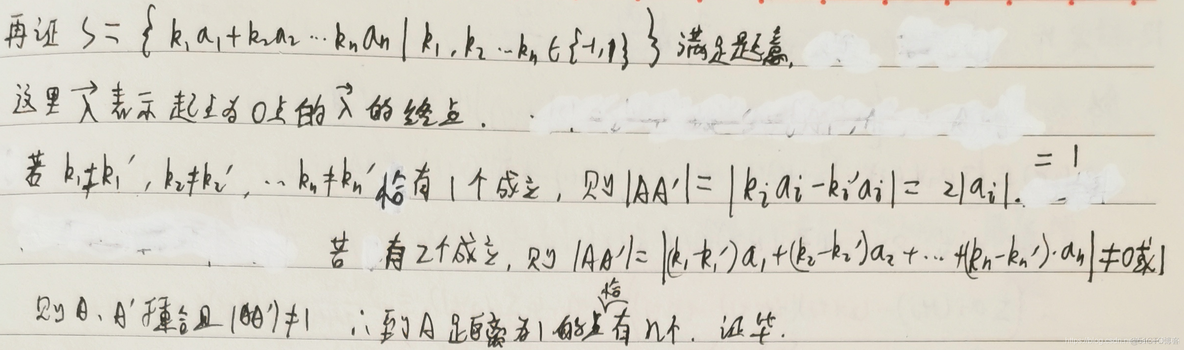 再证 S = { k₁a₁+k₂a₂…kₙaₙ | k₁,k₂…kₙ∈{-1,1} } 满足题意,
这里 λ⃗ 表示起点为O点的 λ⃗ 的终点.
若 k₁≠k₁′, k₂≠k₂′, … kₙ≠kₙ′ 恰有1个成立, 则|AA′|=|kᵢaᵢ-kᵢ′aᵢ|=2|aᵢ|. =1
若 有2个成立, 则 |AA′|=|(k₁-k₁′)a₁+(k₂-k₂′)a₂+…+(kₙ-kₙ′)·aₙ|≠0或1
则A、A′不重合且|AA′|≠1 ∴到A距离为1的点恰有n个. 证毕.